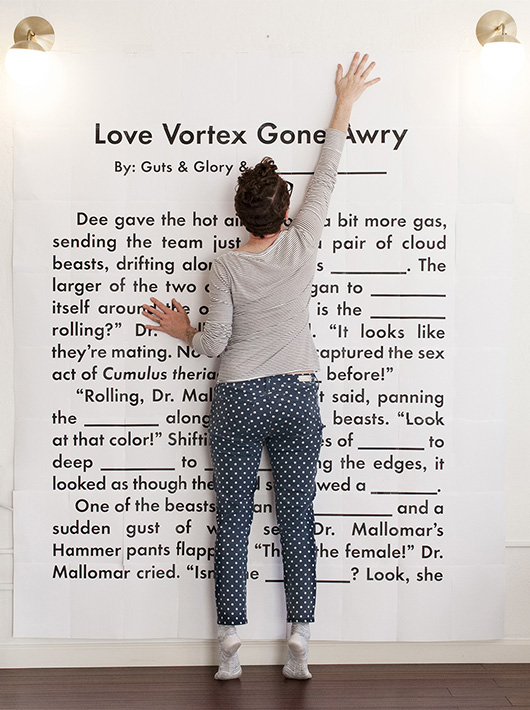 Love Vortex Gone Awry
By: Guts & Glory & ____________
Dee gave the hot a bit more gas,
sending the team just pair of cloud
beasts, drifting ________. The
larger of the two to ________
itself is the ________
rolling?” Dr. “It looks like
they’re mating. captured the sex
act of Cumulus before!”
“Rolling, Dr. said, panning
the ________ beasts. “Look
at that color!” of ________ to
deep ________ to the edges, it
looked as though a ________.
One of the beasts ________ and a
sudden gust of Dr. Mallomar’s
Hammer pants the female!” Dr.
Mallomar cried. ________? Look, she